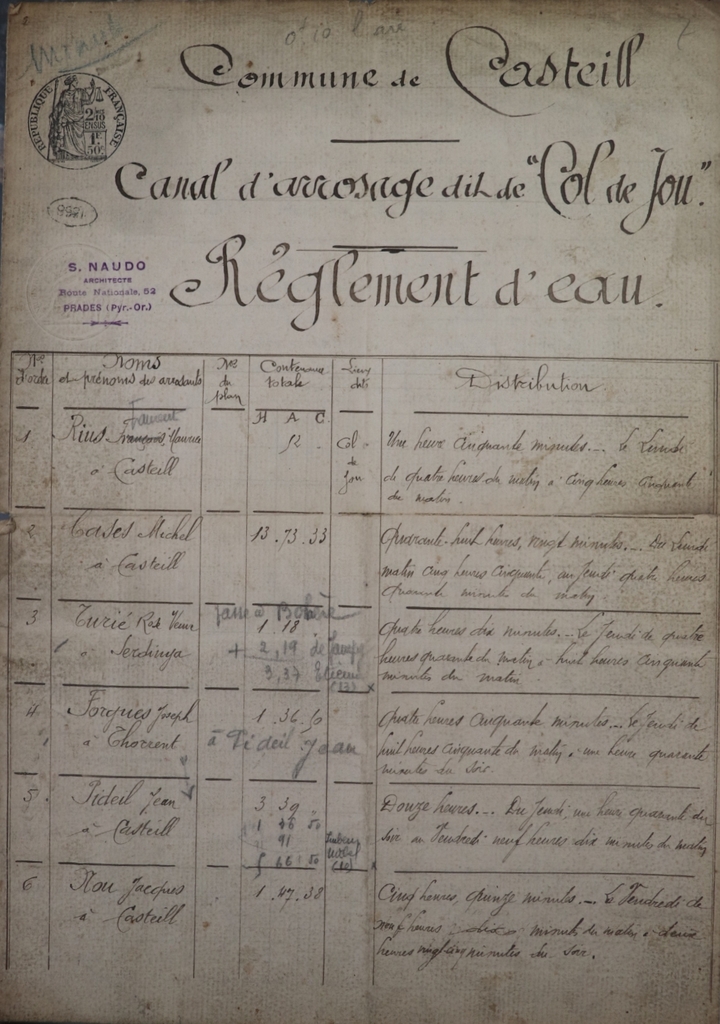 Minute
Commune de Casteill
RÉPUBLIQUE FRANÇAISE
2/10 EN SUS
1F 50c
Canal d'arrosage dit de "Col de Jou".
992
S. NAUDO
ARCHITECTE
Route Nationale, 52
PRADES (Pyr.-Or.)
Règlement d'eau.
Nos d'ordre
Noms et prénoms des arrosants
Nos du plan
Contenance totale
Lieux dits
Distribution
H A C
1
Rius François, Maurice
à Casteill
12
Col de Jou
Une heure cinquante minutes.... Le Lundi
de quatre heures du matin à cinq heures cinquante
du matin.
2
Cases Michel
à Casteill
13.73.33
Quarante-huit heures, vingt minutes.... Du Lundi
matin cinq heures cinquante, au Jeudi quatre heures
quarante minutes du matin.
3
Turié
à Serdinya
passe à
1.18
+ 2,19 de
3,37 Etienne
(13) x
Quatre heures dix minutes.... Le Jeudi de quatre
heures quarante du matin à huit heures cinquante
minutes du matin
4
Forgues Joseph
à Thorrent
1.36.50
à Pideil Jean
Quatre heures cinquante minutes.... Le Jeudi de
huit heures cinquante du matin à une heure quarante
minutes du soir.
5
Pideil Jean
à Casteill
3 39
1 36 50
91
5 66 50
(10) x
Douze heures.... Du Jeudi, une heure quarante du
soir au Vendredi neuf heures dix minutes du matin
6
Nou Jacques
à Casteill
1.47.38
Cinq heures, quinze minutes.... Le Vendredi de
neuf heures dix minutes du matin à deux
heures vingt cinq minutes du soir.